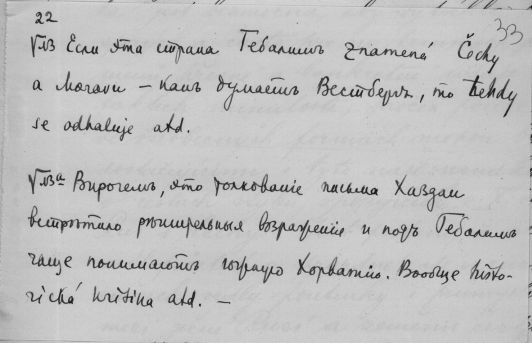 22
33
Если эта страна Гебалимъ znamená Čechy
a Moravu – какъ думаетъ Вестбергъ, то tehdy
se odhaluje atd.
Впрочемъ, это толкованіе письма Хаздаи
встрѣтило рѣшительныя возраженія и подъ Гебалимъ
чаще понимаютъ горную Хорватію. Вообще histo-
rická kritika atd. —